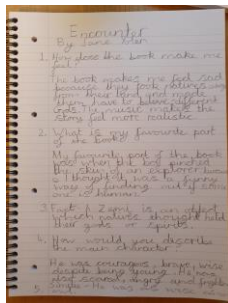 Encounter
By Jane
1. How does the book make me
feel?
The book makes me feel sad
because they took natives away
from their land and made
them have to have different
gods. The music makes the
story feel more realistic.
2. What is my favourite part
of the book?
My favourite part of the book
was when the boy pinched
the skin of an explorer because
I thought it was a funny
way of finding out if some
one is human.
3. Fact: A Zemi is an object
which natives thought held
their gods or spirits.
4. How would you describe
the main character?
He was courageous, brave, wise
despite being young. He was
also scared, angry and
5.